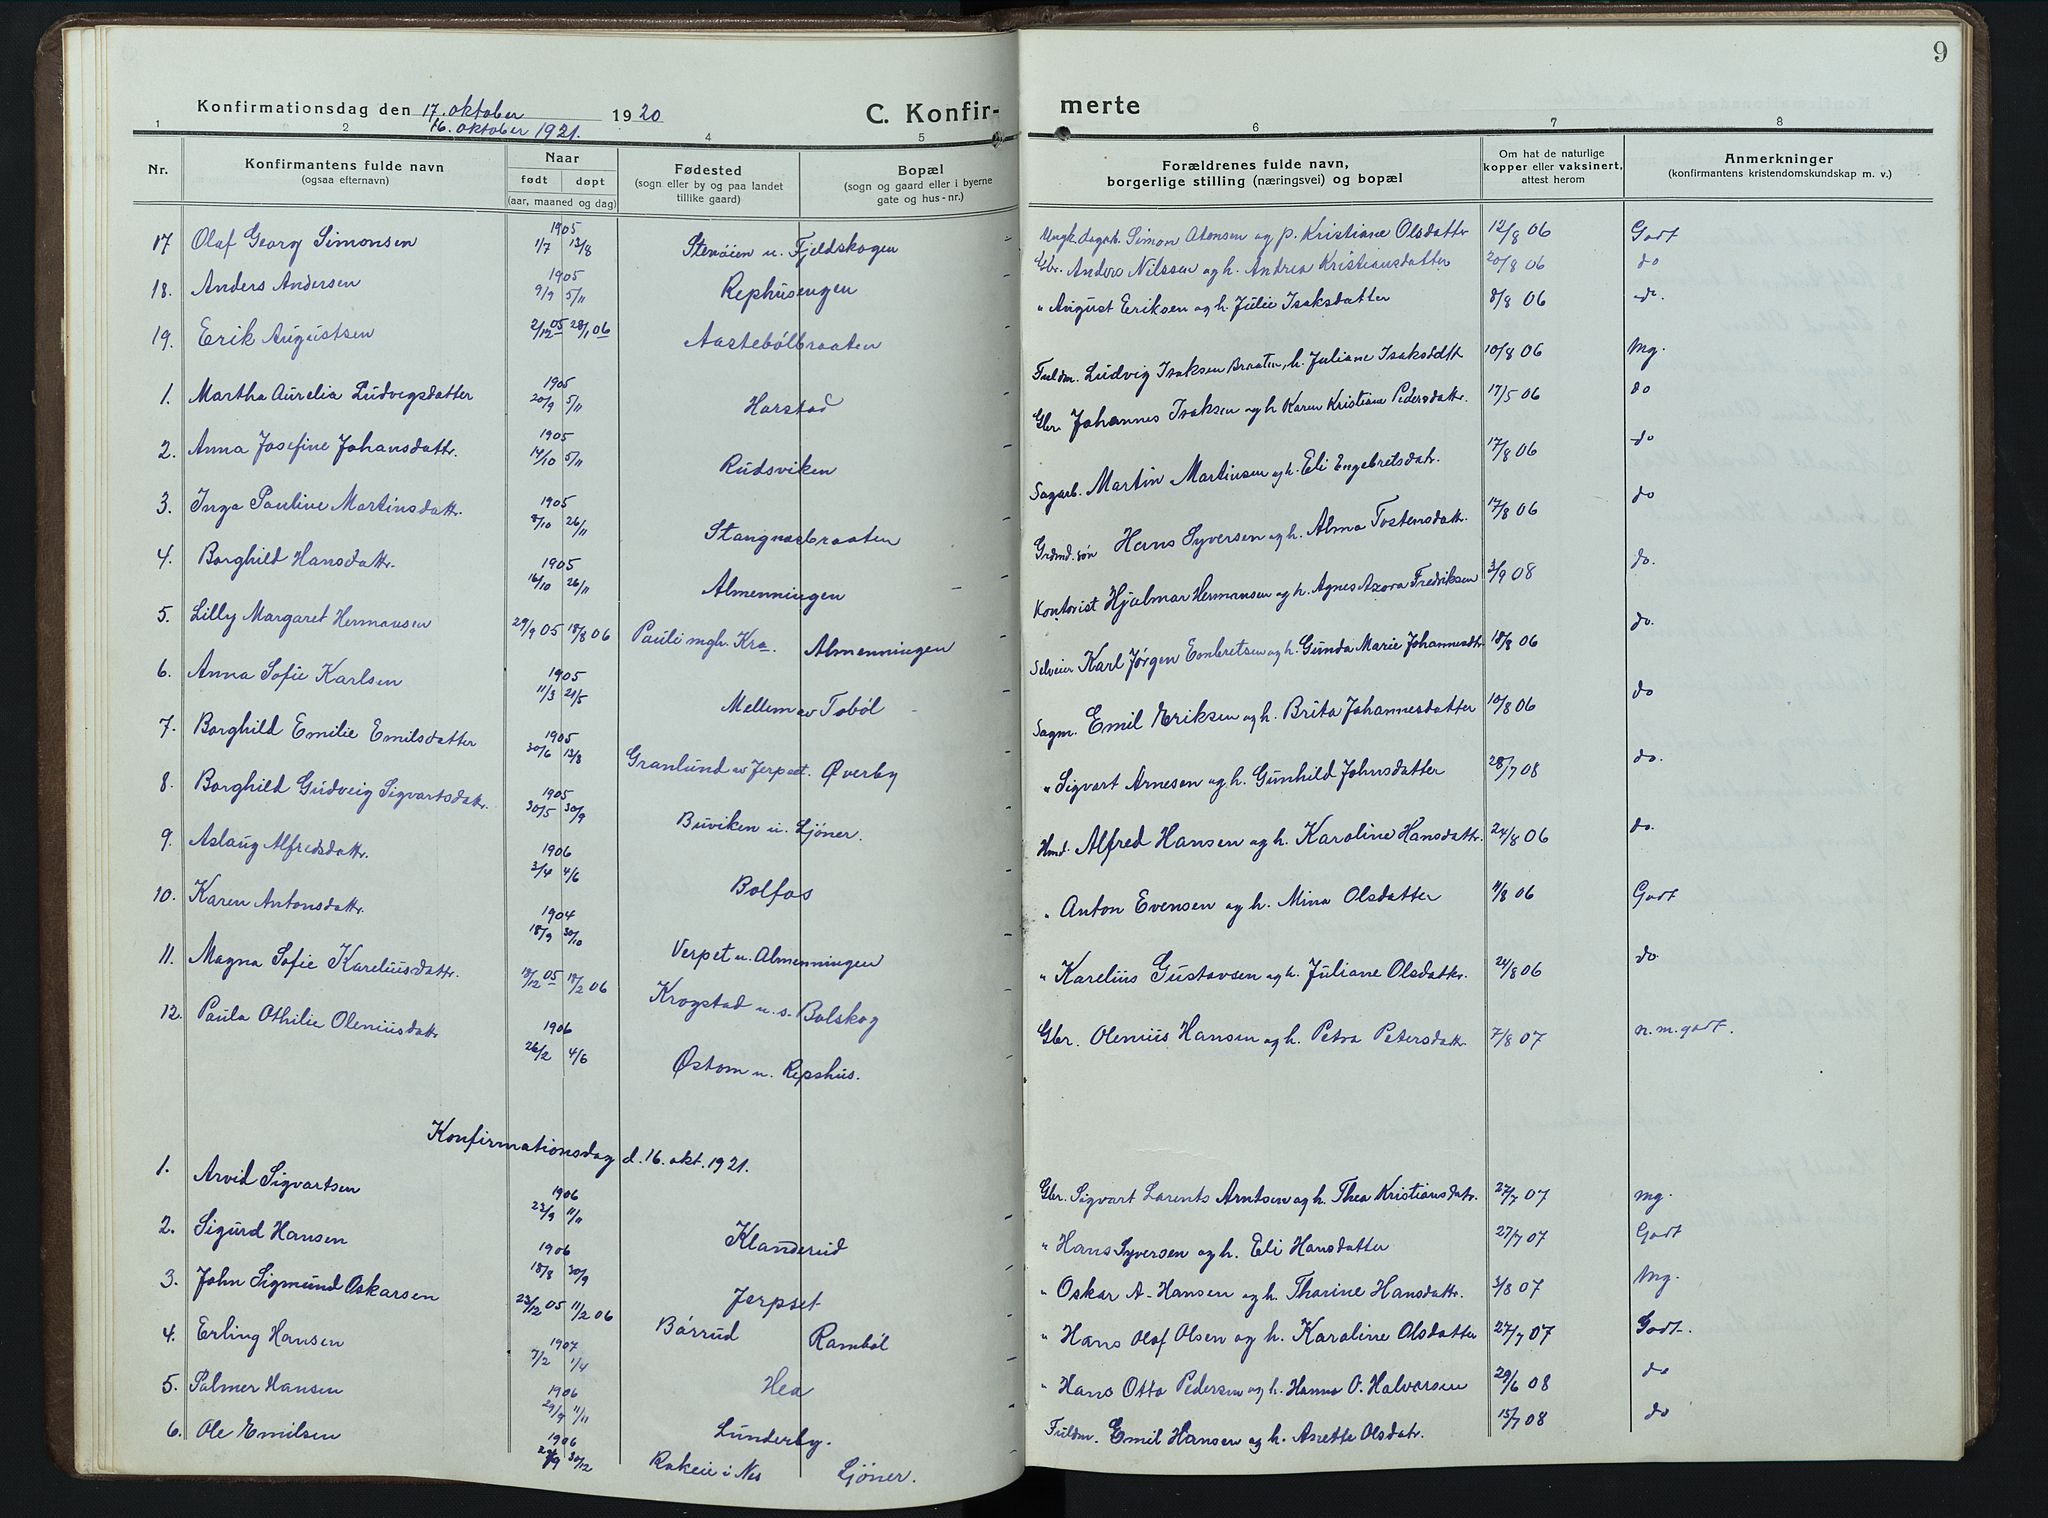 9
Konfirmationsdag den 17. oktober 1920 C. Konfir- merte
16. oktober 1921.
1 2 3 4 5 6 7 8
Nr. Konfirmantens fulde navn (ogsaa efternavn) Naar født døpt (aar, maaned og dag) Fødested (sogn eller by og paa landet tillike gaard) Bopæl (sogn og gaard eller i byerne gate og hus-nr.) Forældrenes fulde navn, borgerlige stilling (næringsvei) og bopæl Om hat de naturlige kopper eller vaksinert, attest herom Anmerkninger (konfirmantens kristendomskundskap m. v.)
17 Olaf Georg Simonsen 1905 1/7 13/8 Stenøien u. Fjeldskogen Ungk. dagarb. Simon Atensen og p. Kristiane Olsdatter 12/8 06 Godt
18. Anders Andersen 1905 9/9 5/11 Rephusengen Gbr. Anders Nilssen og h. Andrea Kristiansdatter 20/8 06 do
19. Erik Augustsen 2/12 05 28/1 06 Aastebølbraaten " August Eriksen og h. Julie Isaksdatter 8/8 06 do.
1. Martha Aurelia Ludvigsdatter 1905 20/9 5/11 Harstad Fuldm. Ludvig Isaksen Braaten, h. Juliane Isaksddt 10/8 06 Mg.
2. Anna Josefine Johansdattr. 1905 14/10 5/11 Rudsviken Gbr. Johannes Isaksen og h Karen Kristiane Pedersdattr. 17/5 06 do
3. Inga Pauline Martinsdattr. 1905 8/10 26/11 Stangnesbraaten Sagarb. Martin Martinsen og h. Eli Engebretsdatr. 17/8 06 do
4. Borghild Hansdattr. 1905 16/10 26/11 Almenningen Grdmd. søn Hans Syversen og h. Alma Tostensdattr. 17/8 06 do
5. Lilly Margaret Hermansen 29/9 05 18/8 06 Pauli mgh. Kra. Almenningen Kontorist Hjalmar Hermansen og h. Agnes Azora Fredriksen 3/9 08 do.
6. Anna Sofie Karlsen 1905 11/3 21/5 Mellem av Tobøl Selveier Karl Jørgen Embretsen og h. Gunda Marie Johannesdtr 18/8 06 do.
7. Borghild Emilie Emilsdatter 1905 30/6 13/8 Granlund av Jerpset. Øverby Sagm. Emil Eriksen og h. Brita Johannesdatter 10/8 06 do
8. Borghild Gudveig Sigvartsdattr. 1905 30/5 30/9 Buviken u. Ljöner. " Sigvart Arnesen og h. Gunhild Johnsdatter 28/7 08 do.
9. Aslaug Alfredsdattr. 1906 2/4 4/6 Bolfos Hmd. Alfred Hansen og h. Karoline Hansdattr. 24/8 06 do.
10. Karen Antonsdattr. 1904 18/9 30/10 Verpet u. Almenningen " Anton Evensen og h. Mina Olsdatter 11/8 06 Godt
11. Magna Sofie Kareliusdattr. 18/12 05 18/2 06 Krogstad u. s. Bolskog " Karelius Gustavsen og h. Juliane Olsdattr. 24/8 06 do
12. Paula Othilie Oleniusdattr 1906 26/2 4/6 Østom u. Repshus. Gbr. Olenius Hansen og h. Petra Petersdattr. 7/8 07 n. m. godt.
Konfirmationsdag d. 16. okt. 1921.
1. Arvid Sigvartsen 1906 23/9 11/11 Klanderud Gbr. Sigvart Larents Arntsen og h. Thea Kristiansdatr. 27/7 07 mg.
2. Sigurd Hansen 1906 18/8 30/9 Jerpset " Hans Syversen og h. Eli Hansdatter 27/7 07 Godt
3. John Sigmund Oskarsen 23/12 05 11/2 06 Børrud Rambøl " Oskar A- Hansen og h. Thorine Hansdattr. 3/8 07 Mg.
4. Erling Hansen 1907 7/2 1/4 Hea " Hans Olaf Olsen og h. Karoline Olsdatter 27/7 07 Godt.
5. Palmer Hansen 1906 29/9 11/11 Lunderby. " Hans Otto Pedersen og h. Hanna O. Halvorsen 29/6 08 do
6. Ole Emilsen 1906 30/12 Rakeie i Nes Ljöner. Fuldm. Emil Hansen og h. Anette Olsdatr. 15/7 08 do